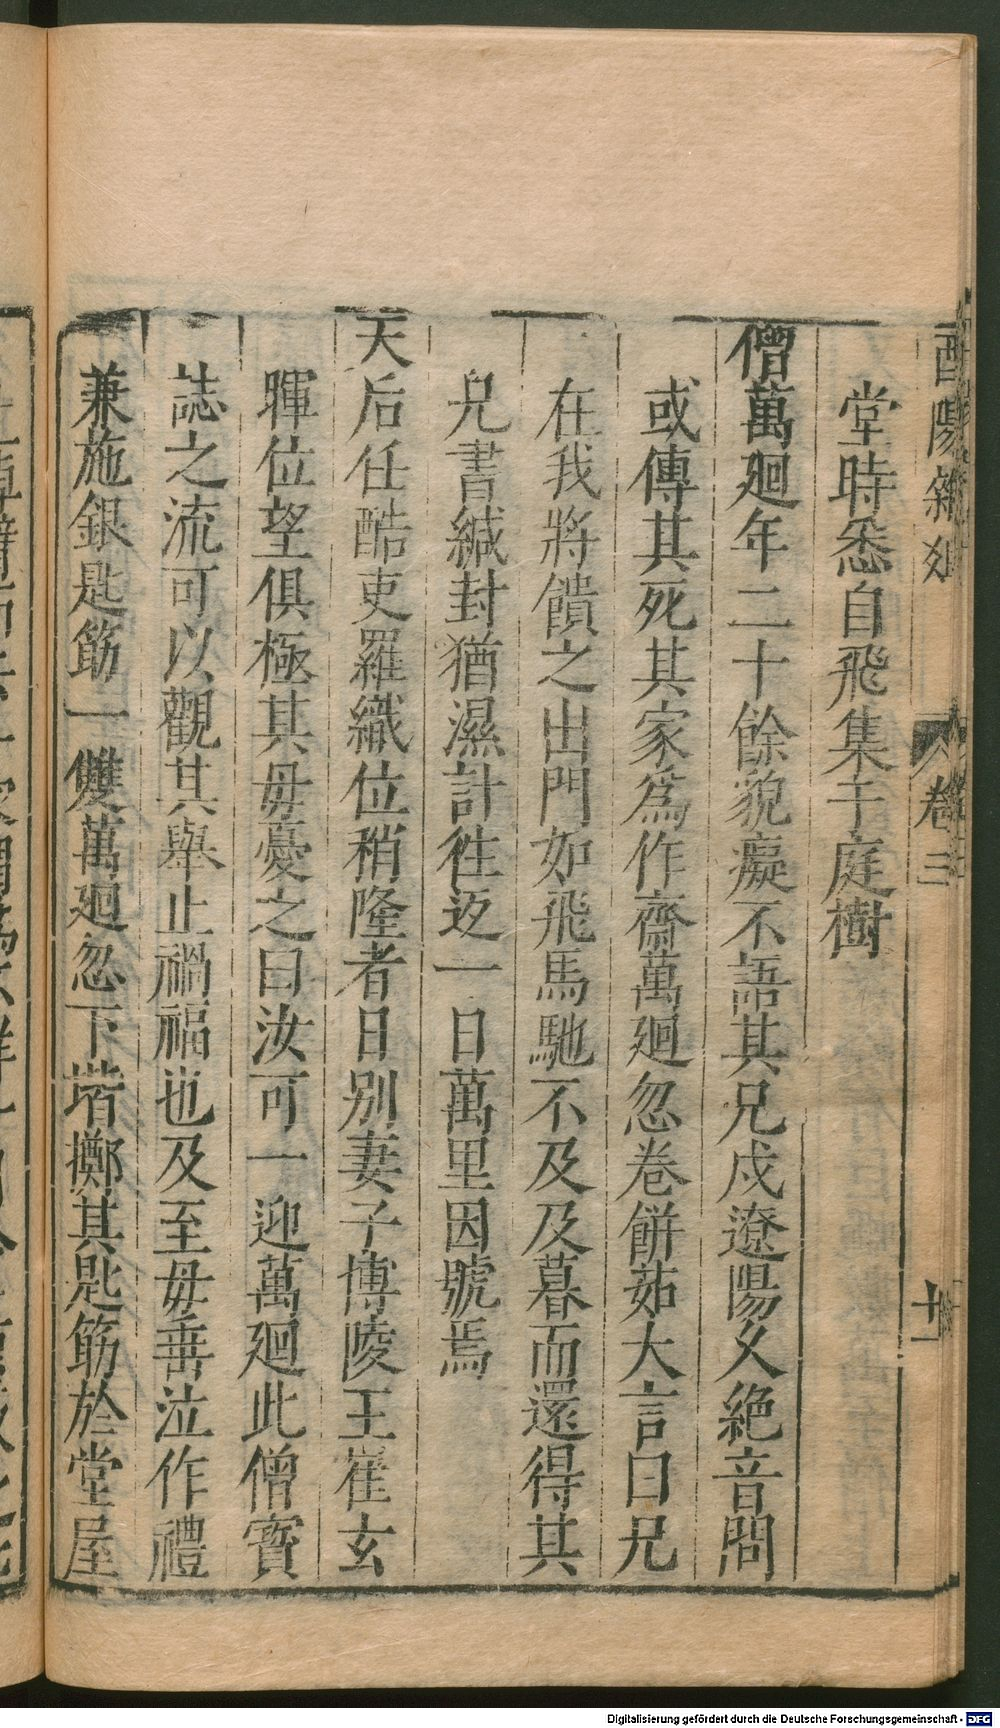 酉陽雜俎 卷三 十一
堂時悉自飛集于庭樹
僧萬廻年二十餘貌癡不語其兄戍遼陽久絶音問
或傳其死其家爲作齋萬廻忽卷餅茹大言曰兄
在我將饋之出門如飛馬馳不及及暮而還得其
兄書緘封猶濕計徃返一日萬里因號焉
天后任酷吏羅織位稍隆者日别妻子博陵王崔玄
暉位望俱極其毋憂之曰汝可一迎萬廻此僧寳
誌之流可以觀其舉止禍福也及至毋垂泣作禮
兼施銀匙筯一雙萬廻忽下堦擲其匙筯於堂屋
Digitalisierung gefördert durch die Deutsche Forschungsgemeinschaft - DFG